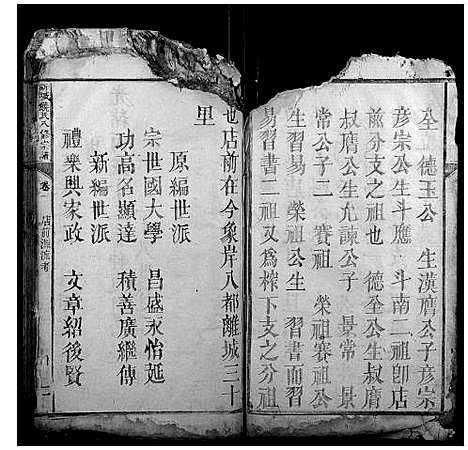 全 德玉公 生漢膺公子彦宗
彦宗公生斗應 斗南二祖卽店
前分支之祖也 德全公生叔膺
叔膺公生允諫公子 景常 景
常公子二 賽祖 榮祖賽祖公
生習易 榮祖公生 習書而習
易習書二祖又爲榨下支之分祖
也店前在今象岸八都離城三十
里
原編世派
宗世國大學 昌盛永怡延
功高名顯達 積善廣繼傳
新編世派
禮樂興家政 文章紹後賢
氏八修宗譜 卷 店前源流考